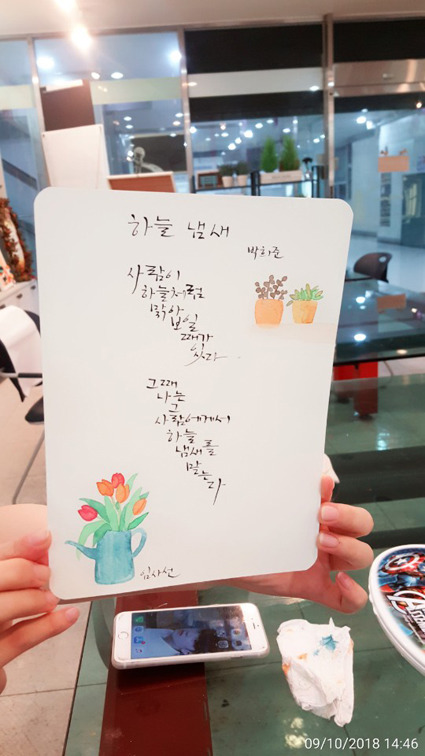 하늘 냄새
박희준
사람이
하늘처럼
맑아
보일
때가
있다
그때
나는
그
사람에게서
하늘
냄새를
맡는다
09/10/2018 14:46